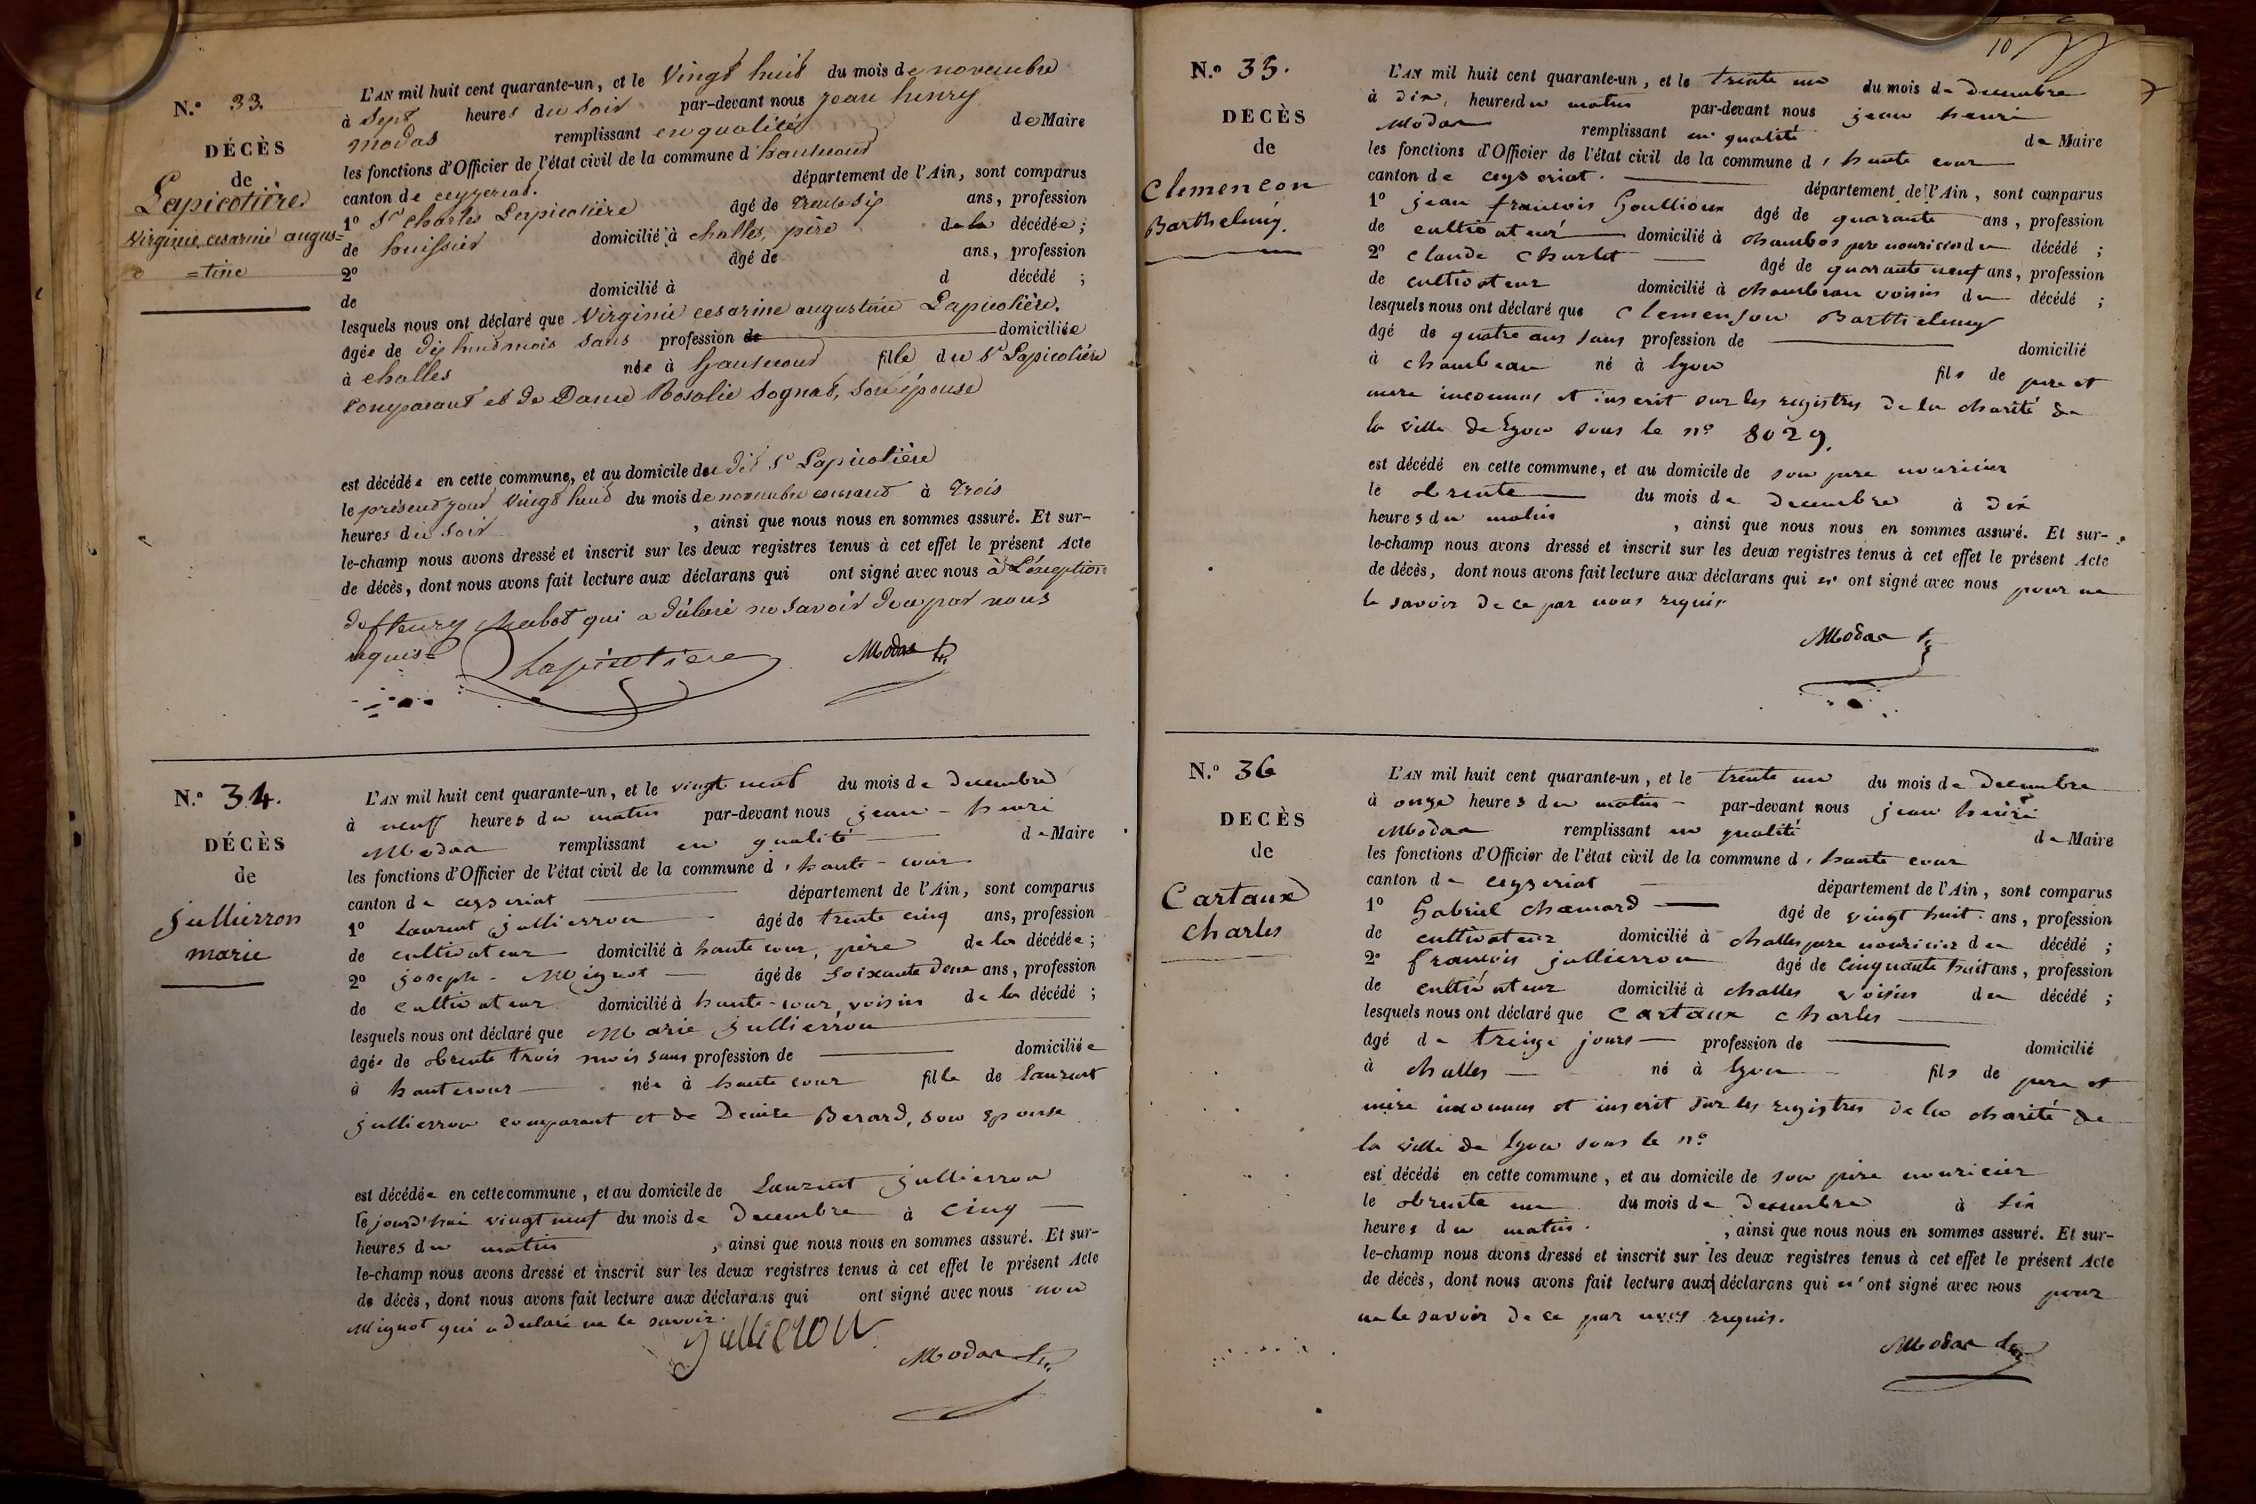 N.º 33.
DÉCÈS
de
Lapicotière
Virginie cesarine augus=
=tine
L'AN mil huit cent quarante-un, et le Vingt huit du mois de novembre
à Sept heures du soir par-devant nous jean henry
modas remplissant en qualité de Maire
les fonctions d'Officier de l'état civil de la commune d'hautecour
canton de ceyzeriat. département de l'Ain, sont comparus
1º Sr Charles Lapicotière âgé de trente six ans, profession
de huissier domicilié à challes, père de la décédée;
2º âgé de ans, profession
de domicilié à d décédé ;
lesquels nous ont déclaré que Virginie cesarine augustine Lapicotière.
âgée de dix huit mois sans profession de domiciliée
à challes née à hautecour fille du Sr Lapicotière
comparant et de Dame Rosalie Sognat, son épouse
est décédée en cette commune, et au domicile du dit Sr Lapicotière
le présent jour vingt huit du mois de novembre courant à trois
heures du soir , ainsi que nous nous en sommes assuré. Et sur-
le-champ nous avons dressé et inscrit sur les deux registres tenus à cet effet le présent Acte
de décès, dont nous avons fait lecture aux déclarans qui ont signé avec nous à L'exception
de fleury chabot qui a déclaré ne savoir de ce par nous
requis=
Lapicotiere Modas
N.º 34.
DÉCÈS
de
jullierron
marie
L'AN mil huit cent quarante-un, et le vingt neuf du mois de decembre
à neuf heures du matin par-devant nous jean - henri
Modas remplissant en qualité de Maire
les fonctions d'Officier de l'état civil de la commune d'haute-cour
canton de ceyseriat département de l'Ain, sont comparus
1º Laurent jullierron âgé de trente cinq ans, profession
de cultivateur domicilié à haute cour, père de la décédée;
2º joseph - Mignot âgé de soixante deux ans, profession
de cultivateur domicilié à haute-cour, voisin de la décédé ;
lesquels nous ont déclaré que Marie jullierron
âgée de trente trois mois sans profession de domiciliée
à hautecour née à haute cour fille de Laurent
jullierron comparant et de Denise Berard, son epouse
est décédée en cette commune, et au domicile de Laurent jullierron
le jourd'hui vingt neuf du mois de decembre à cinq
heures du matin , ainsi que nous nous en sommes assuré. Et sur-
le-champ nous avons dressé et inscrit sur les deux registres tenus à cet effet le présent Acte
de décès, dont nous avons fait lecture aux déclarans qui ont signé avec nous non
Mignot qui a déclaré ne le savoir.
jullieron
Modas
10
N.º 35.
DECÈS
de
Clemencon
Barthelemy.
L'AN mil huit cent quarante-un, et le trente un du mois de decembre
à dix, heures du matin par-devant nous jean henri
Modas remplissant en qualité de Maire
les fonctions d'Officier de l'état civil de la commune d'haute cour
canton de ceyseriat. département de l'Ain, sont comparus
1º jean francois Goullioux âgé de quarante ans, profession
de cultivateur domicilié à chambos pere nouricier du décédé ;
2º claude charlet âgé de quarante neuf ans, profession
de cultivateur domicilié à chambeau voisin du décédé ;
lesquels nous ont déclaré que Clemenson Barthelemy
âgé de quatre ans sans profession de domicilié
à chambeau né à lyon fils de pere et
mere inconnus et inscrit sur les registres de la charité de
la ville de Lyon sous le nº 8029.
est décédé en cette commune, et au domicile de son pere nouricier
le trente du mois de decembre à dix
heures du matin , ainsi que nous nous en sommes assuré. Et sur-
le-champ nous avons dressé et inscrit sur les deux registres tenus à cet effet le présent Acte
de décès, dont nous avons fait lecture aux déclarans qui n'ont signé avec nous pour ne
le savoir de ce par nous requis
Modas
N.º 36
DECÈS
de
Cartaux
Charles
L'AN mil huit cent quarante-un, et le trente un du mois de decembre
à onze heures du matin par-devant nous jean henri
Modas remplissant en qualité de Maire
les fonctions d'Officier de l'état civil de la commune d'haute cour
canton de ceyseriat département de l'Ain, sont comparus
1º Gabriel chamard âgé de vingt huit ans, profession
de cultivateur domicilié à challes pere nouricier du décédé ;
2º francois jullierron âgé de cinquante huit ans, profession
de cultivateur domicilié à challes voisin du décédé ;
lesquels nous ont déclaré que Cartaux charles
âgé de treize jours profession de domicilié
à challes né à lyon fils de pere et
mère inconnus et inscrit sur les registres de la charité de
la ville de lyon sous le nº
est décédé en cette commune, et au domicile de son père nouricier
le trente un du mois de decembre à six
heures du matin. , ainsi que nous nous en sommes assuré. Et sur-
le-champ nous avons dressé et inscrit sur les deux registres tenus à cet effet le présent Acte
de décès, dont nous avons fait lecture aux déclarans qui n'ont signé avec nous pour
ne le savoir de ce par nous requis.
Modas